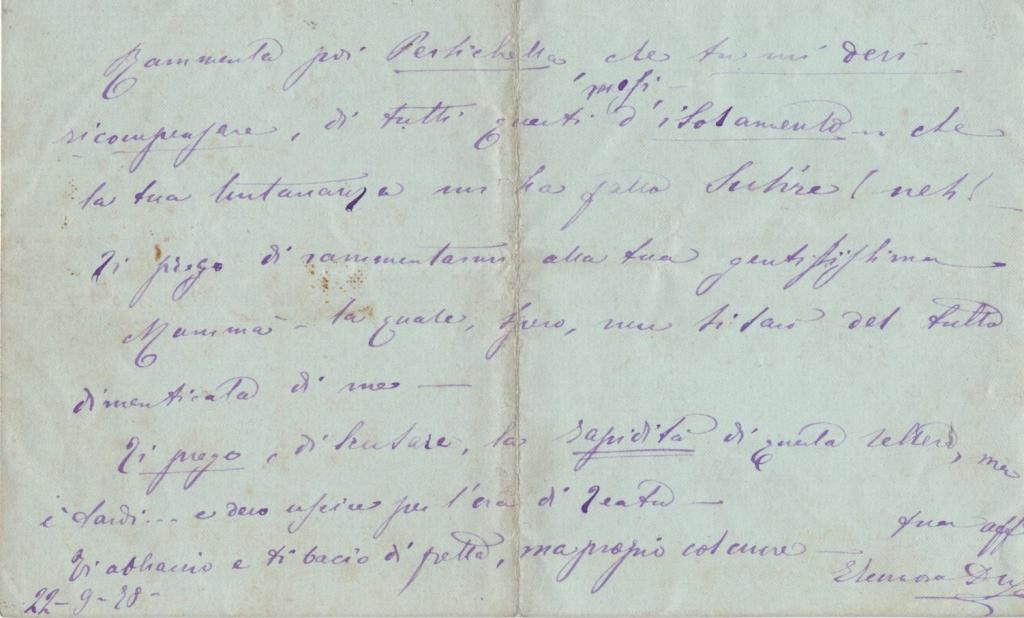 Rammenta poi Pertichella che tu mi devi
mesi
ricompensare, di tutti questi d'isolamento... che
la tua lontananza mi ha fatto Subire! neh!
Ti prego di rammentarmi alla tua gentilissima
Mamma - la quale, spero, non si sarà del tutto
dimenticata di me —
Ti prego, di scusare, la rapidità di questa lettera, ma
è tardi... e devo uscire per l'ora di Teatro —
Ti abbraccio e ti bacio di fretta, ma proprio col cuore —
tua aff
Eleonora Duse
22-9-78-